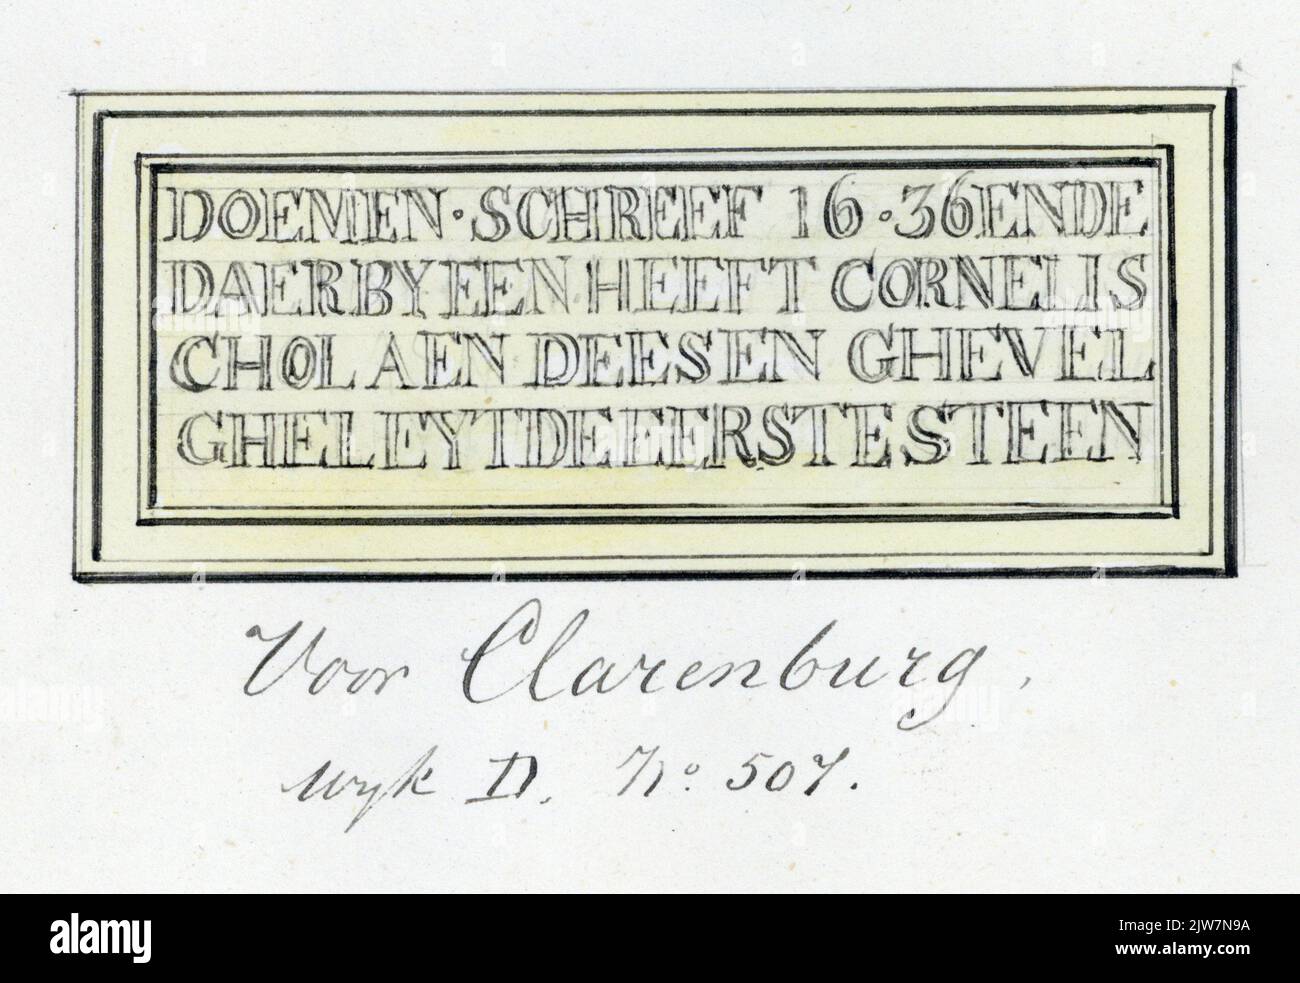 DOEMEN·SCHREEF 16·36ENDE
DAERBYEENHEEFT CORNELIS
CHOLAEN DEESEN GHEVEL
GHELEYTDEEERSTESTEEN
Voor Clarenburg.
wyk D. No: 507.
alamy
Image ID: 2JW7N9A
www.alamy.com